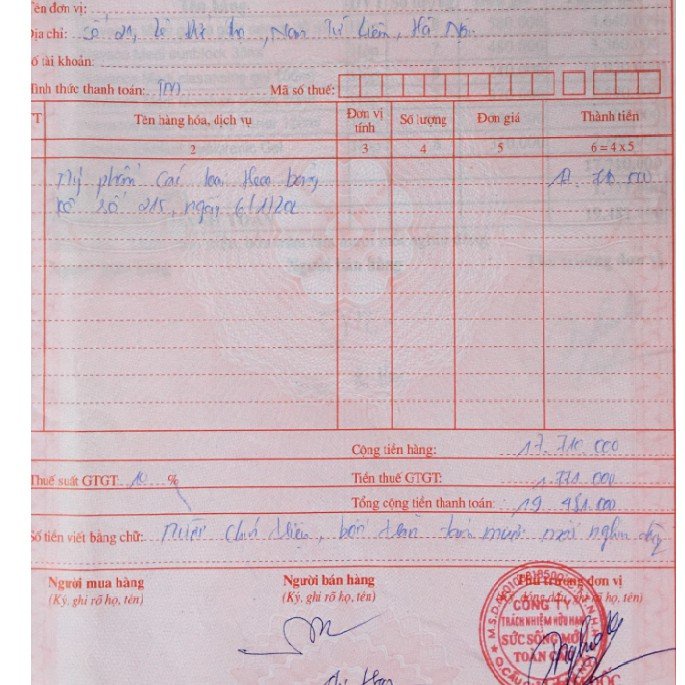 Tên đơn vị:
Địa chỉ: Số 21, Lê Đức Thọ, Nam Từ Liêm, Hà Nội
Số tài khoản:
Hình thức thanh toán: TM Mã số thuế:
TT Tên hàng hóa, dịch vụ Đơn vị tính Số lượng Đơn giá Thành tiền
2 3 4 5 6 = 4 x 5
Mỹ phẩm các loại theo bảng 17.710.000
kê số 215, ngày 6/1/20
Cộng tiền hàng: 17.710.000
Thuế suất GTGT 10 % Tiền thuế GTGT: 1.771.000
Tổng cộng tiền thanh toán: 19 481.000
Số tiền viết bằng chữ: Mười chín triệu, bốn trăm tám mươi mốt nghìn đồng
Người mua hàng Người bán hàng Thủ trưởng đơn vị
(Ký, ghi rõ họ, tên) (Ký, ghi rõ họ, tên) (Ký, đóng dấu, ghi rõ họ, tên)
CÔNG TY
TRÁCH NHIỆM HỮU HẠN
SỨC SỐNG MỚI
TOÀN